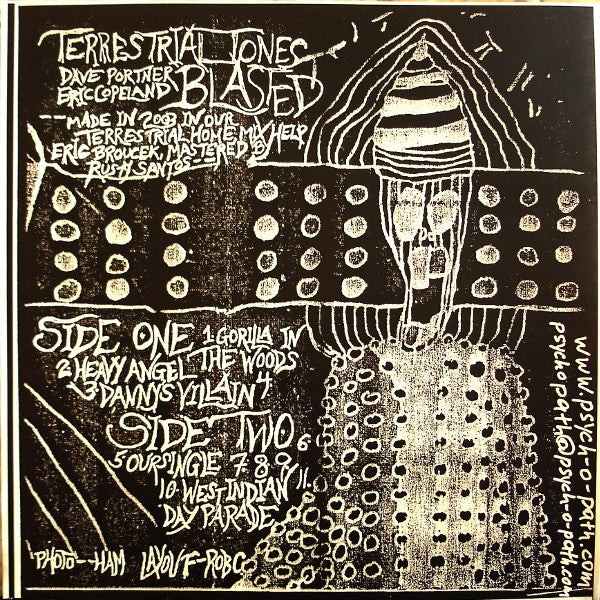 TERRESTRIAL TONES
DAVE PORTNER BLASTED
ERIC COPELAND
--MADE IN 2003 IN OUR
TERRESTRIAL HOME MIX HELP
ERIC BROUCEK, MASTERED BY
RUSTY SANTOS--
SIDE ONE 1 GORILLA IN
2 HEAVY ANGEL THE WOODS
3 DANNYS VILLAIN 4
SIDE TWO 6
5 OURSINGLE 7 8 9
10 WEST INDIAN 11
DAY PARADE
PHOTO--HAM LAYOUT-ROBC
www.psych-o-path.com
psychopath@psych-o-path.com